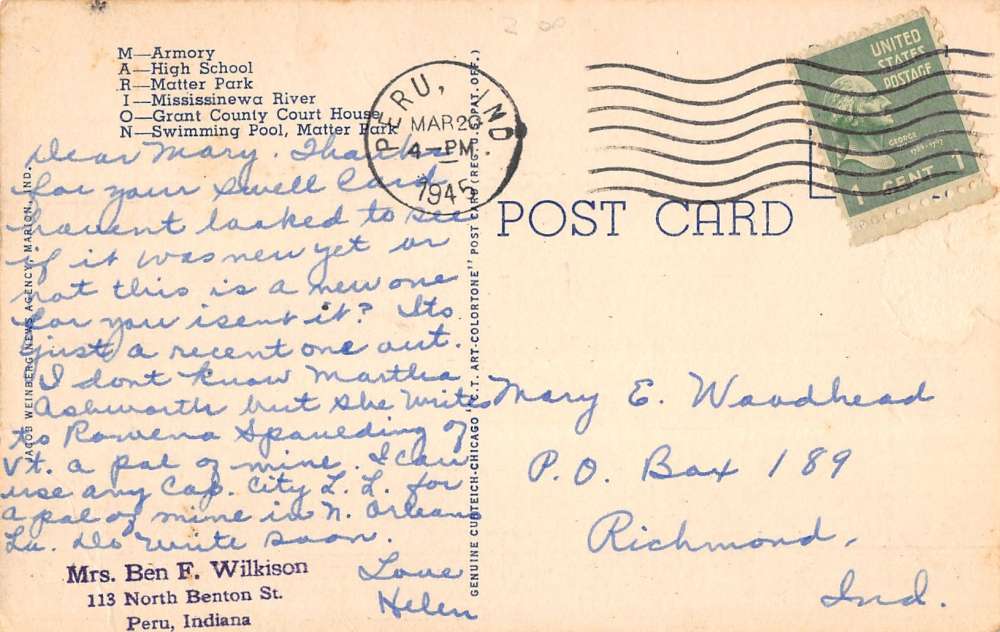 M—Armory
A—High School
R—Matter Park
I—Mississinewa River
O—Grant County Court House
N—Swimming Pool, Matter Park
Dear Mary. Thanks
for your swell Card
havent looked to see
if it was new yet or
not this is a new one
for you isent it? Its
just a recent one out.
I dont know Martha
Ashworth but she writes
to Rowena Spaulding of
Vt. a pal of mine. I can
use any Cap. City L. L. for
a pal of mine in N. Orleans
La. Do write soon.
Love
Helen
Mrs. Ben F. Wilkison
113 North Benton St.
Peru, Indiana
JACOB WEINBERG NEWS AGENCY, MARION, IND.
GENUINE CURTEICH-CHICAGO "C.T. ART-COLORTONE" POST CARD (REG. U.S. PAT. OFF.)
PERU, IND.
MAR 20
4-PM
1945
UNITED
STATES
POSTAGE
GEORGE
1 CENT 1
POST CARD
Mary E. Woodhead
P.O. Box 189
Richmond,
Ind.